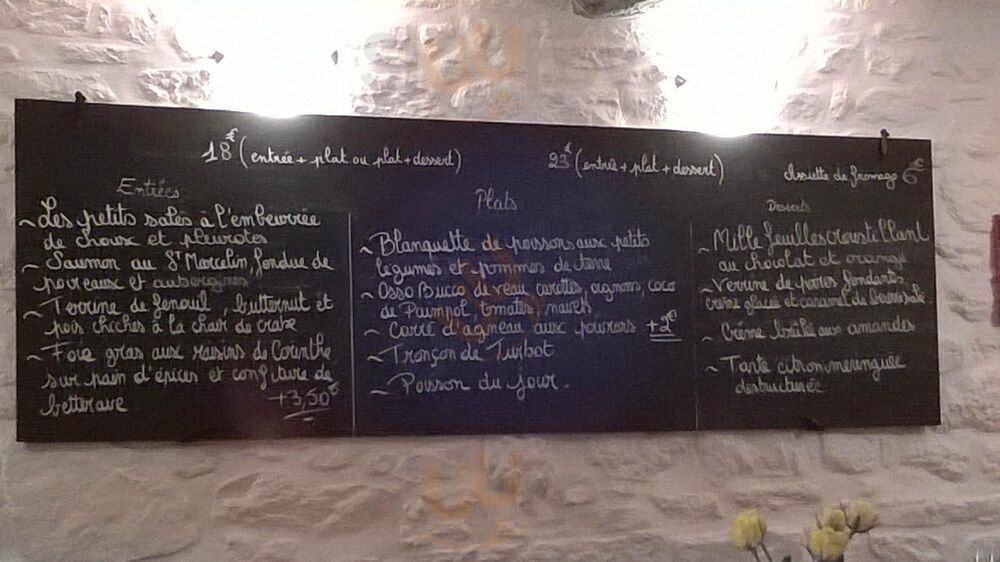 18€ (entrée + plat ou plat + dessert)
23€ (entrée + plat + dessert)
Assiette de fromage 6€
Entrées
~ Les petits salés à l'embeurrée
de choux et pleurotes
~ Saumon au St Marcelin, fondue de
poireaux et aubergines
~ Terrine de fenouil, butternut et
pois chiches à la chair de crabe
~ Foie gras aux raisins de Corinthe
sur pain d'épices et confiture de
betterave +3,50€
Plats
~ Blanquette de poissons aux petits
légumes et pommes de terre
~ Osso Bucco de veau carottes, oignons, coco
de Paimpol, tomates, navets
~ Carré d'agneau aux poivrons +2€
~ Tronçon de Turbot
~ Poisson du jour.
Desserts
~ Mille feuilles croustillant
au chocolat et orange
~ Verrine de poires fondantes,
crème glacée et caramel de beurre salé
~ Crème brûlée aux amandes
~ Tarte citron meringuée
destructurée